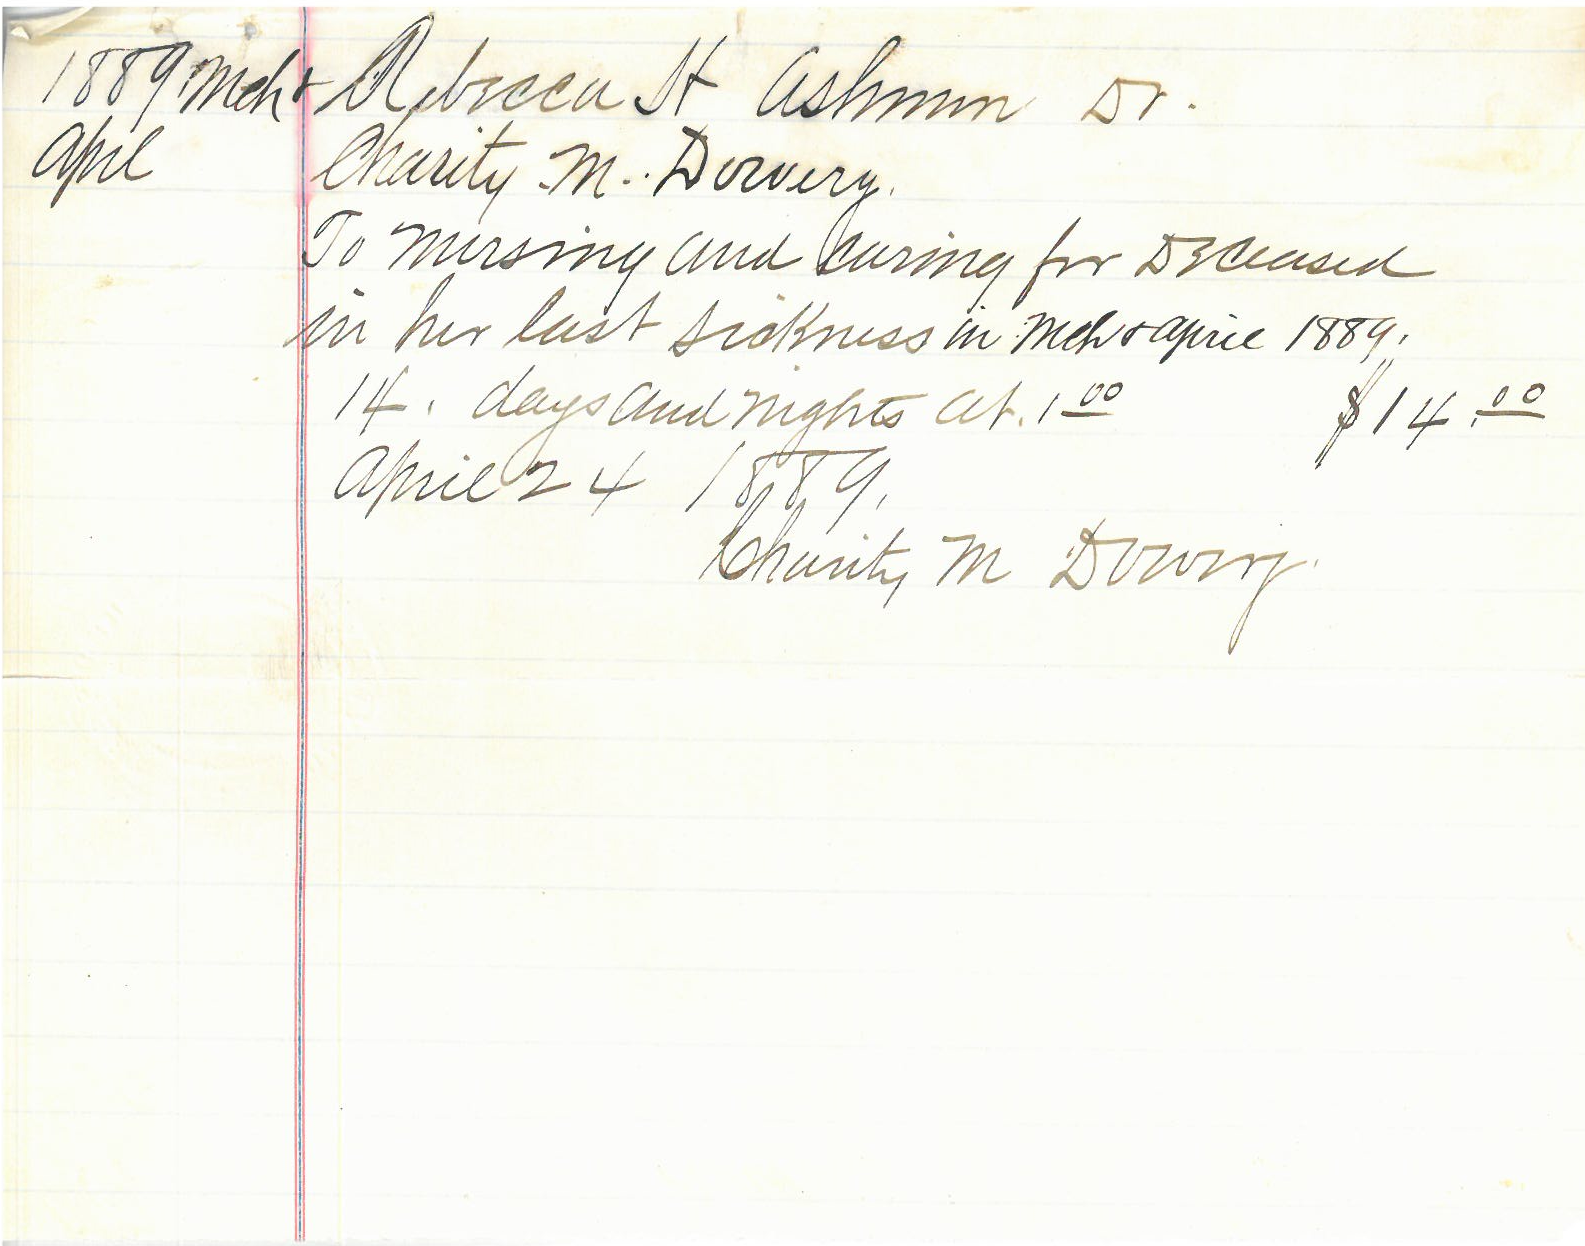 1889 Mch & Rebecca H Ashmun Dr.
April Charity M. Dowery.
To Nursing and Caring for Deceased
in her last sickness in Mch & April 1889.
14. days and nights at. 1 00 $14.00
April 24 1889.
Charity M Dowery.